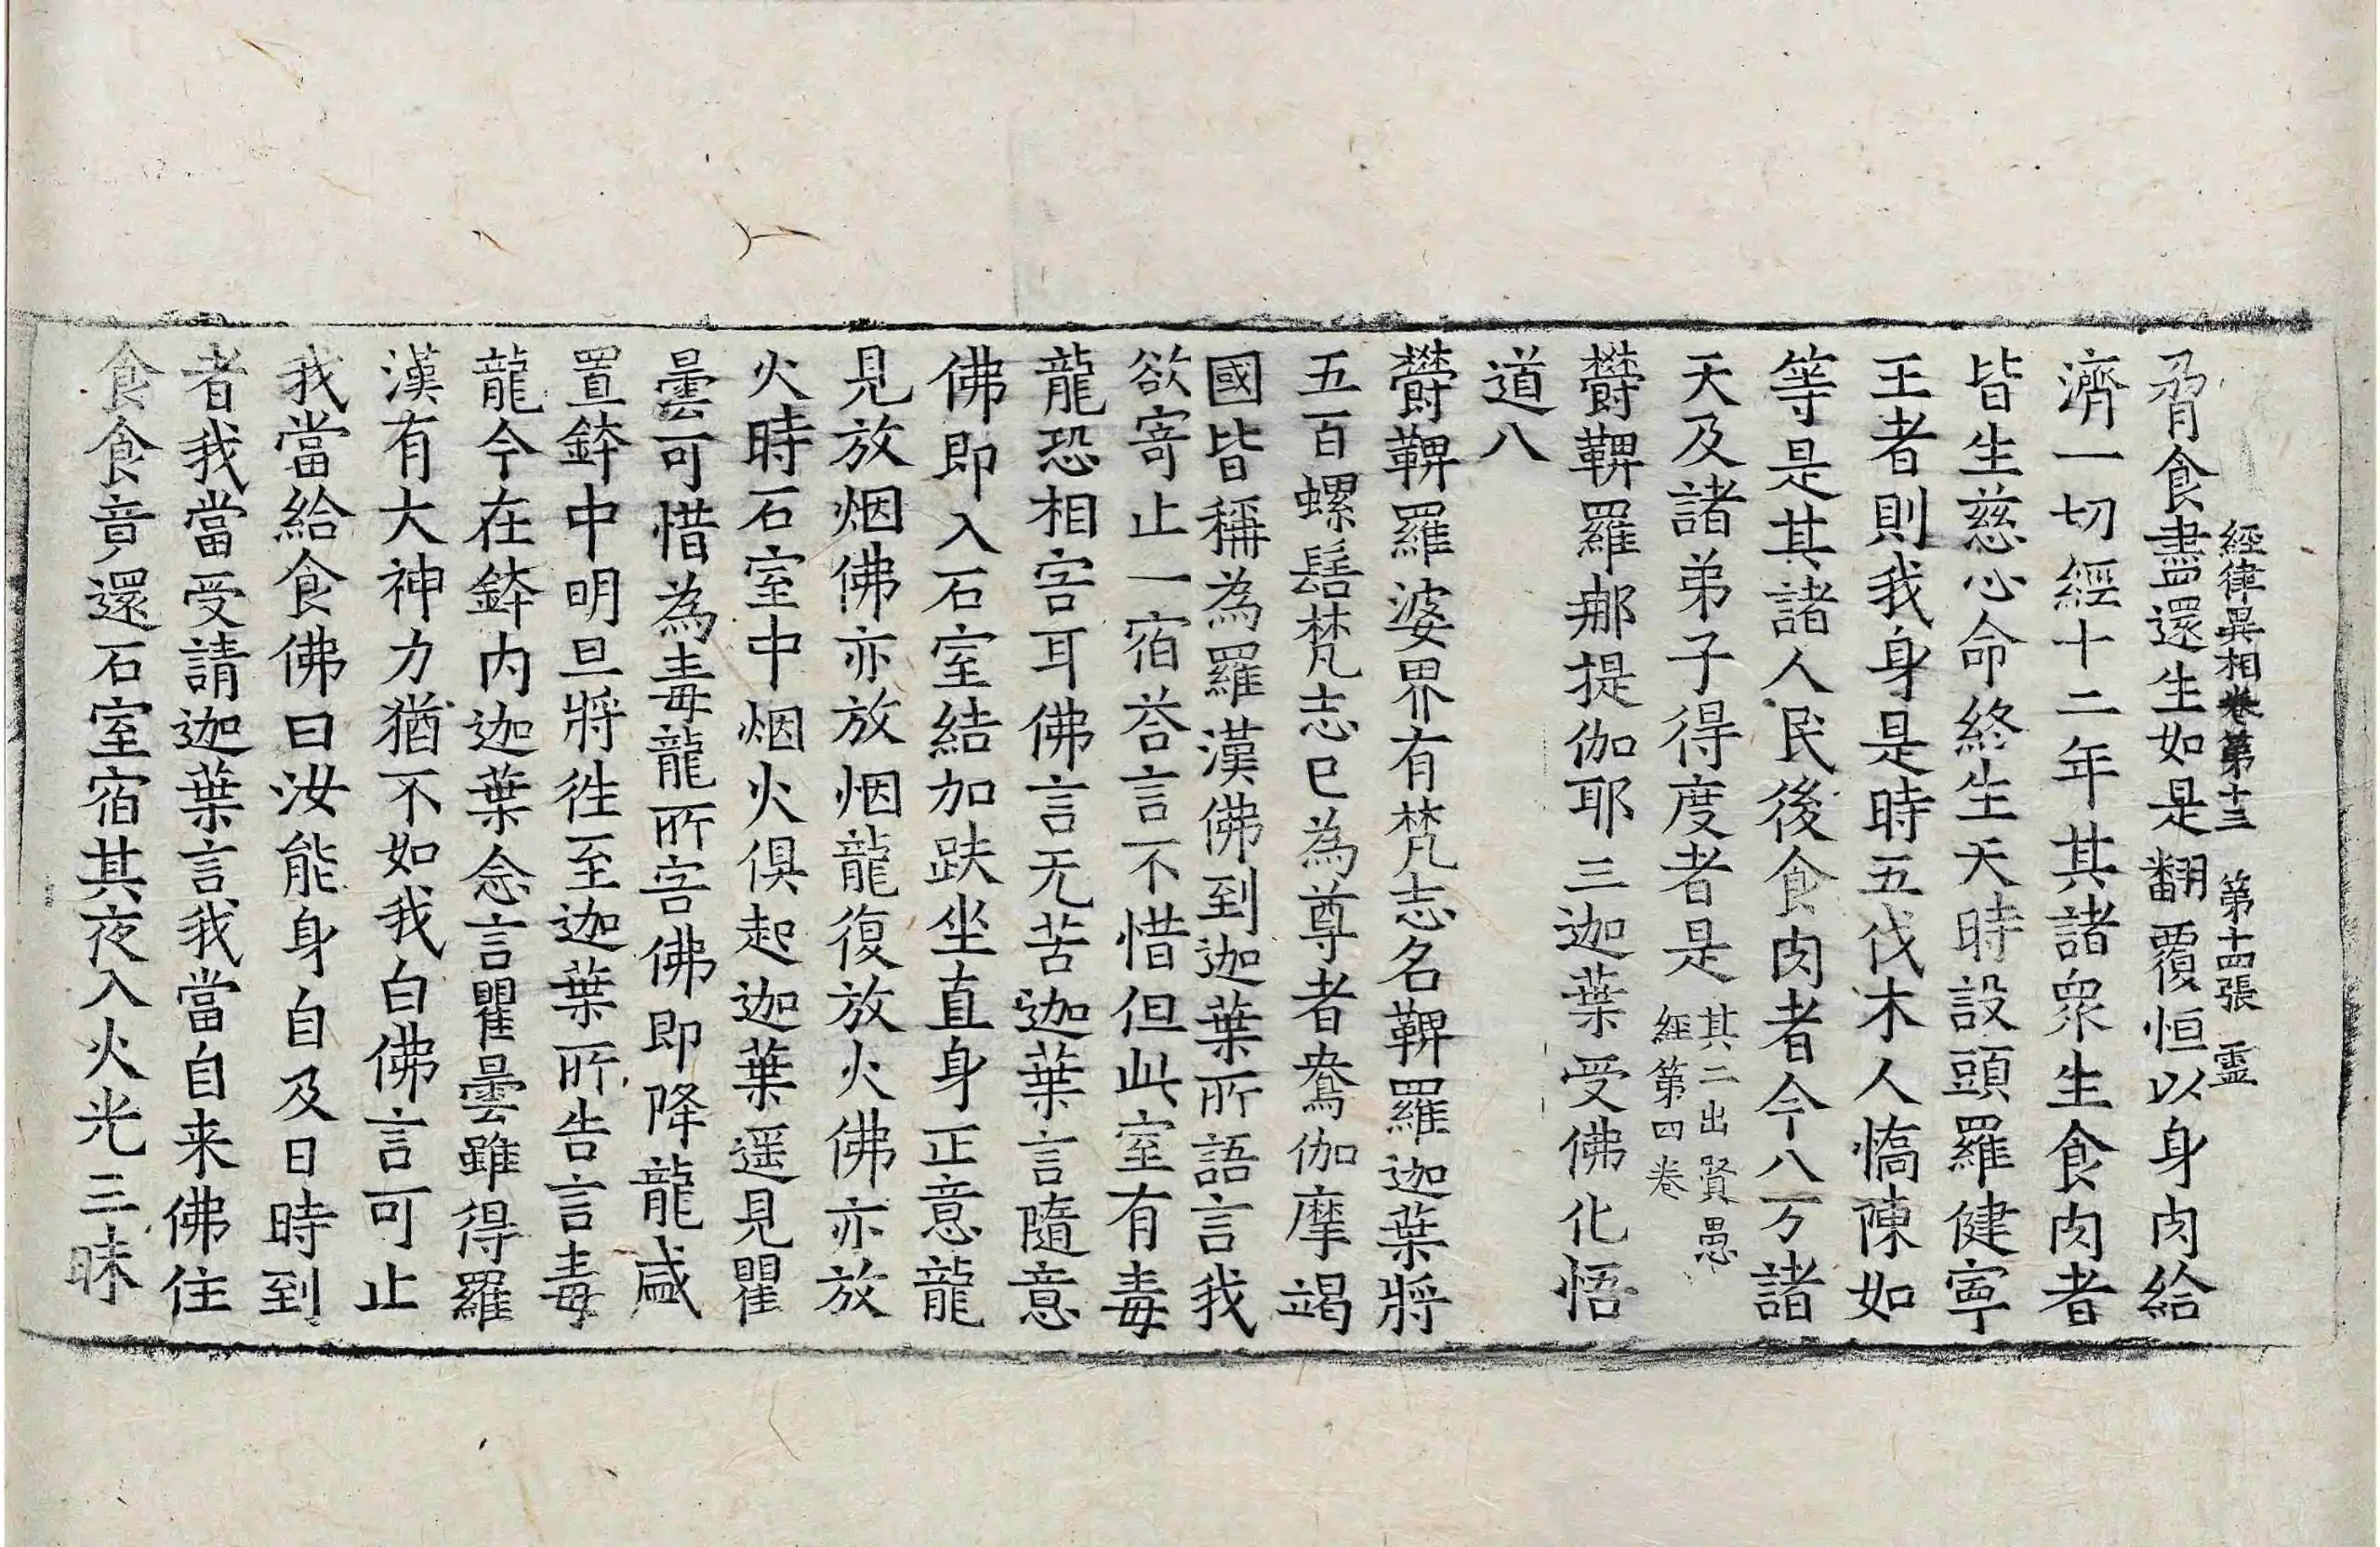 經律異相卷第十三　第十四張　靈
脅食盡還生如是翻覆恒以身肉給
濟一切經十二年其諸衆生食肉者
皆生慈心命終生天時設頭羅健寧
王者則我身是時五伐木人憍陳如
等是其諸人民後食肉者今八万諸
天及諸弟子得度者是其二出賢愚
經第四卷
欝鞞羅那提伽耶三迦葉受佛化悟
道八
欝鞞羅婆界有梵志名鞞羅迦葉將
五百螺髻梵志已為尊者鴦伽摩竭
國皆稱為羅漢佛到迦葉所語言我
欲寄止一宿荅言不惜但此室有毒
龍恐相害耳佛言无苦迦葉言隨意
佛即入石室結加趺坐直身正意龍
見放烟佛亦放烟龍復放火佛亦放
火時石室中烟火俱起迦葉遥見瞿
曇可惜為毒龍所害佛即降龍盛
置鉢中明旦將往至迦葉所告言毒
龍今在鉢内迦葉念言瞿曇雖得羅
漢有大神力猶不如我白佛言可止
我當給食佛曰汝能身自及日時到
者我當受請迦葉言我當自来佛住
食食竟還石室宿其夜入火光三昧